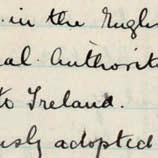 in the Engl
al Authorit
to Ireland.
usly adopted